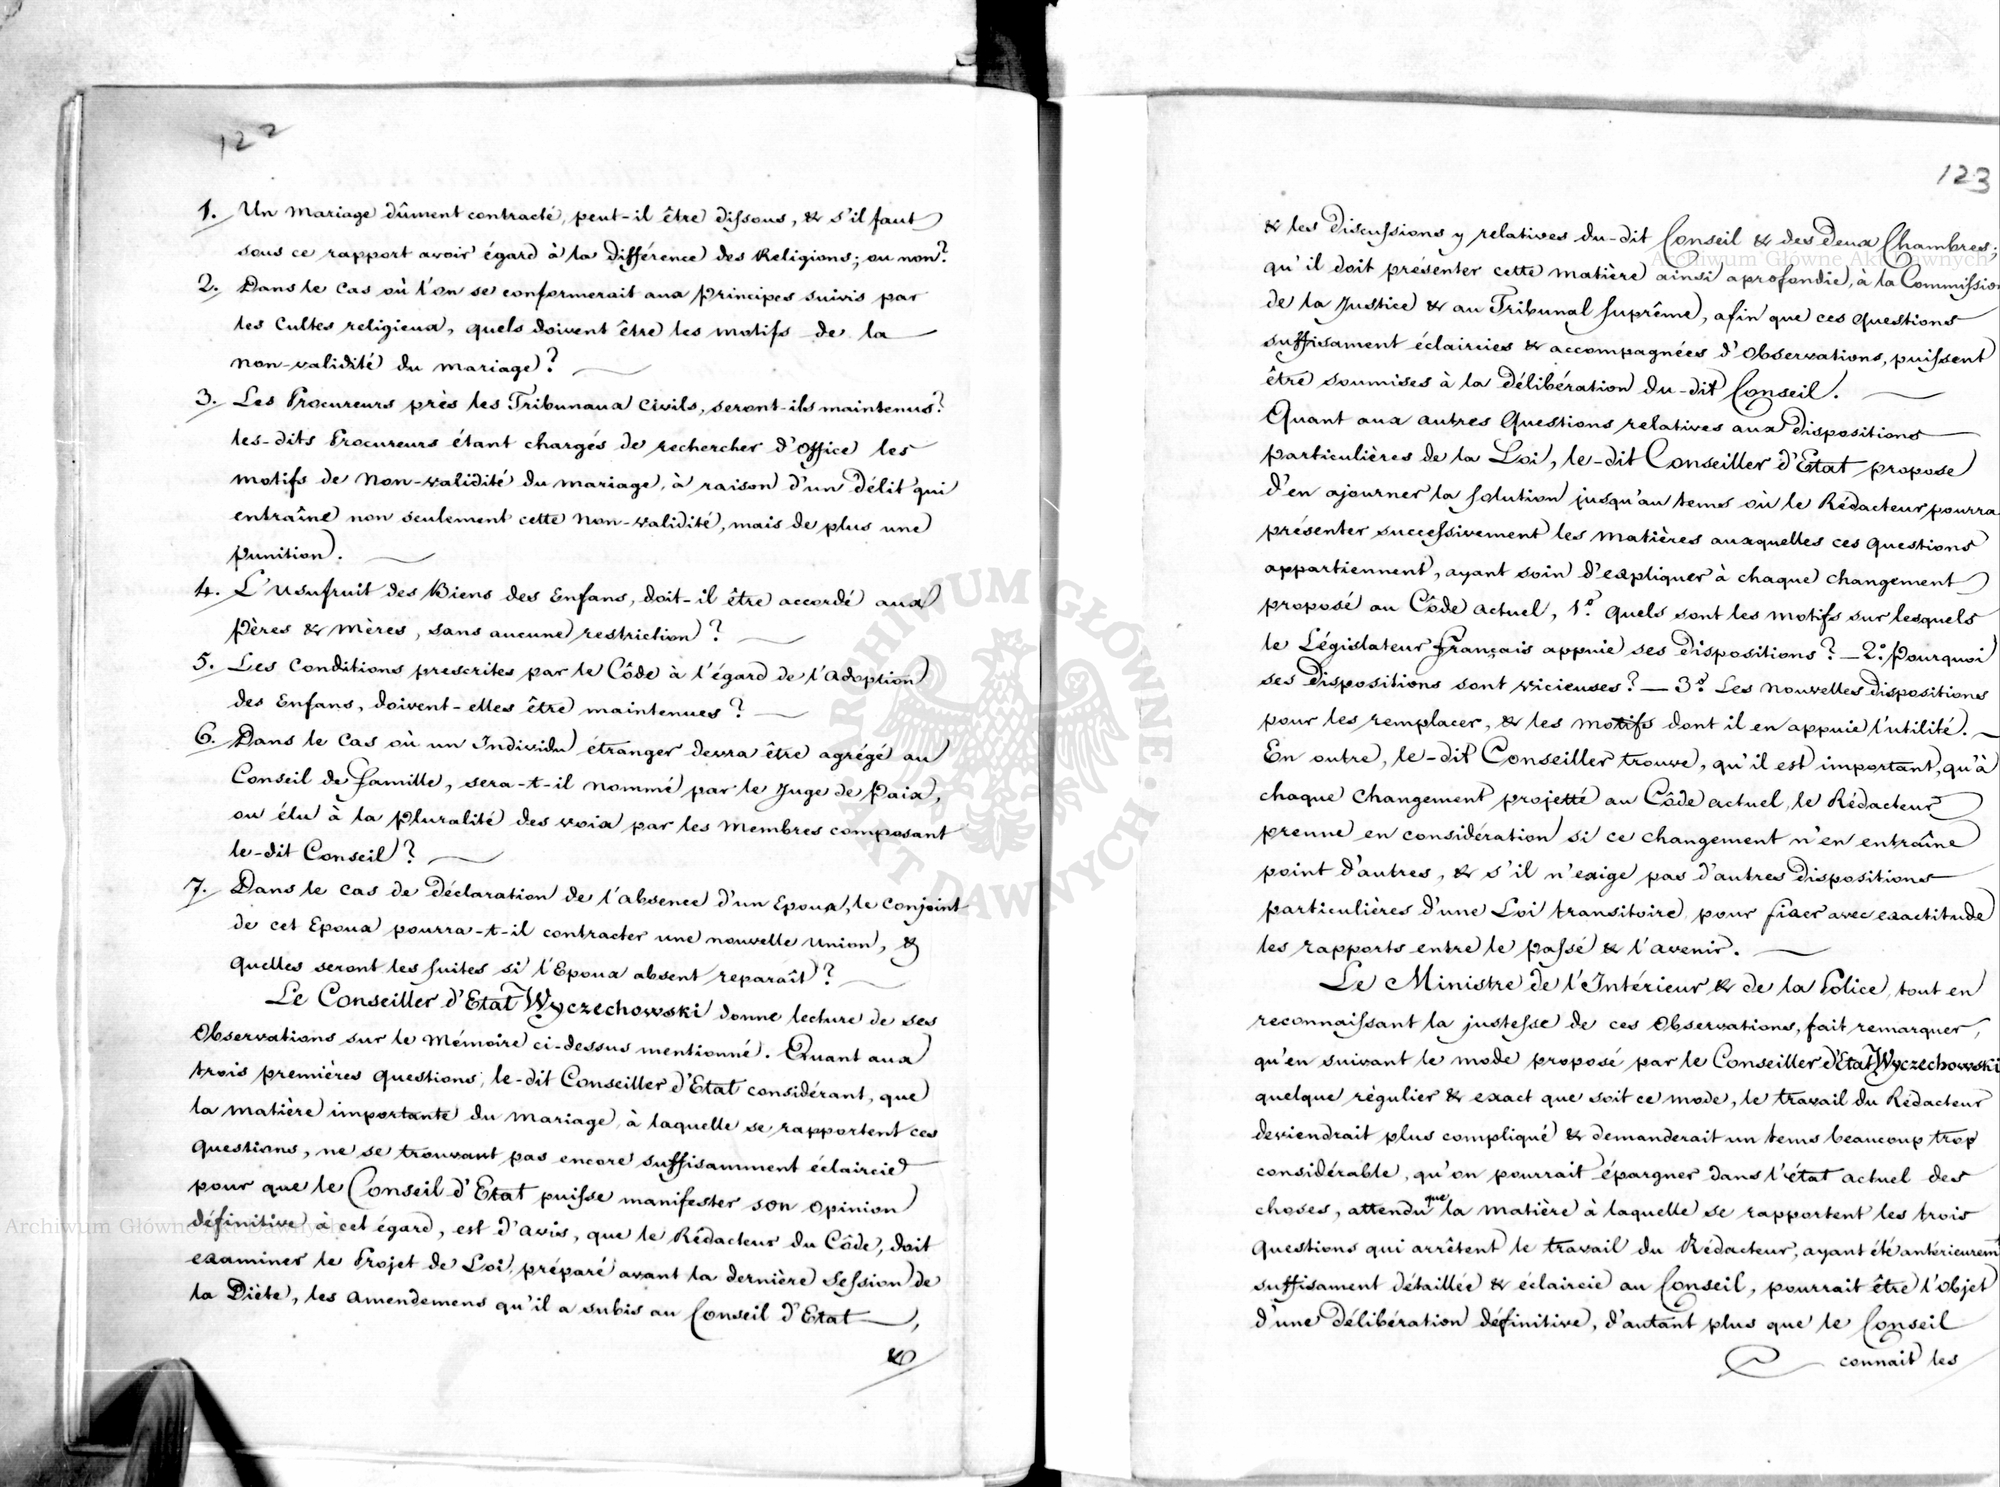 122
1. Un Mariage dûment contracté, peut-il être dissous, & s'il faut
sous ce rapport avoir égard à la différence des Religions; ou non?
2. Dans le cas où l'on se conformerait aux Principes suivis par
les Cultes religieux, quels doivent être les motifs de la
non-validité du mariage?
3. Les Procureurs près les Tribunaux Civils, seront-ils maintenus?
les-dits Procureurs étant chargés de rechercher d'Office les
motifs de Non-validité du mariage, à raison d'un Délit qui
entraîne non seulement cette Non-validité, mais de plus une
punition.
4. L'Usufruit des Biens des Enfans, doit-il être accordé aux
Pères & Mères, sans aucune restriction?
5. Les Conditions prescrites par le Côde à l'égard de l'Adoption
des Enfans, doivent-elles être maintenues?
6. Dans le Cas où un Individu étranger devra être agrégé au
Conseil de famille, sera-t-il nommé par le Juge de Paix,
ou élu à la pluralité des voix par les Membres composant
le-dit Conseil?
7. Dans le cas de Déclaration de l'absence d'un Epoux, le conjoint
de cet Epoux pourra-t-il contracter une nouvelle Union, &
quelles seront les suites si l'Epoux absent reparaît?
Le Conseiller d'Etat Wyczechowski donne lecture de ses
Observations sur le Mémoire ci-dessus mentionné. Quant aux
trois premières questions, le-dit Conseiller d'Etat considérant, que
la matière importante du Mariage, à laquelle se rapportent ces
Questions, ne se trouvant pas encore suffisamment éclaircie
pour que le Conseil d'Etat puisse manifester son Opinion
définitive à cet égard, est d'avis, que le Rédacteur du Côde, doit
examiner le Projet de Loi, préparé avant la dernière Session de
la Diète, les Amendemens qu'il a subis au Conseil d'Etat,
&
123
& les Discussions y relatives du-dit Conseil & des deux Chambres;
qu'il doit présenter cette matière ainsi aprofondie, à la Commission
de la Justice & au Tribunal Suprême, afin que ces Questions
suffisament éclaircies & accompagnées d'Observations, puissent
être soumises à la Délibération du-dit Conseil.
Quant aux autres Questions relatives aux Dispositions
particulières de la Loi, le-dit Conseiller d'Etat propose
d'en ajourner la solution jusqu'au tems où le Rédacteur pourra
présenter successivement les Matières auxquelles ces Questions
appartiennent, ayant soin d'expliquer à chaque changement
proposé au Côde actuel, 1º. Quels sont les motifs sur lesquels
le Législateur français appuie ses Dispositions? — 2º. Pourquoi
ses Dispositions sont vicieuses? — 3º. Les Nouvelles Dispositions
pour les remplacer, & les motifs dont il en appuie l'utilité. —
En outre, le-dit Conseiller trouve, qu'il est important, qu'à
chaque Changement projetté au Côde actuel, le Rédacteur
prenne en considération si ce changement n'en entraîne
point d'autres, & s'il n'exige pas d'autres Dispositions
particulières d'une Loi transitoire, pour fixer avec exactitude
les rapports entre le Passé & l'avenir.
Le Ministre de l'Intérieur & de la Police, tout en
reconnaissant la justesse de ces Observations, fait remarquer,
qu'en suivant le mode proposé par le Conseiller d'Etat Wyczechowski
quelque régulier & exact que soit ce mode, le travail du Rédacteur
deviendrait plus compliqué & demanderait un tems beaucoup trop
considérable, qu'on pourrait épargner dans l'état actuel des
choses, attendu que la Matière à laquelle se rapportent les trois
Questions qui arrêtent le travail du Rédacteur, ayant été antérieurem.t
suffisament détaillée & éclaircie au Conseil, pourrait être l'Objet
d'une Délibération définitive, d'autant plus que le Conseil
connait les
Archiwum Główne Akt Dawnych
Archiwum Główne Akt Dawnych
ARCHIWUM GŁÓWNE · AKT DAWNYCH ·